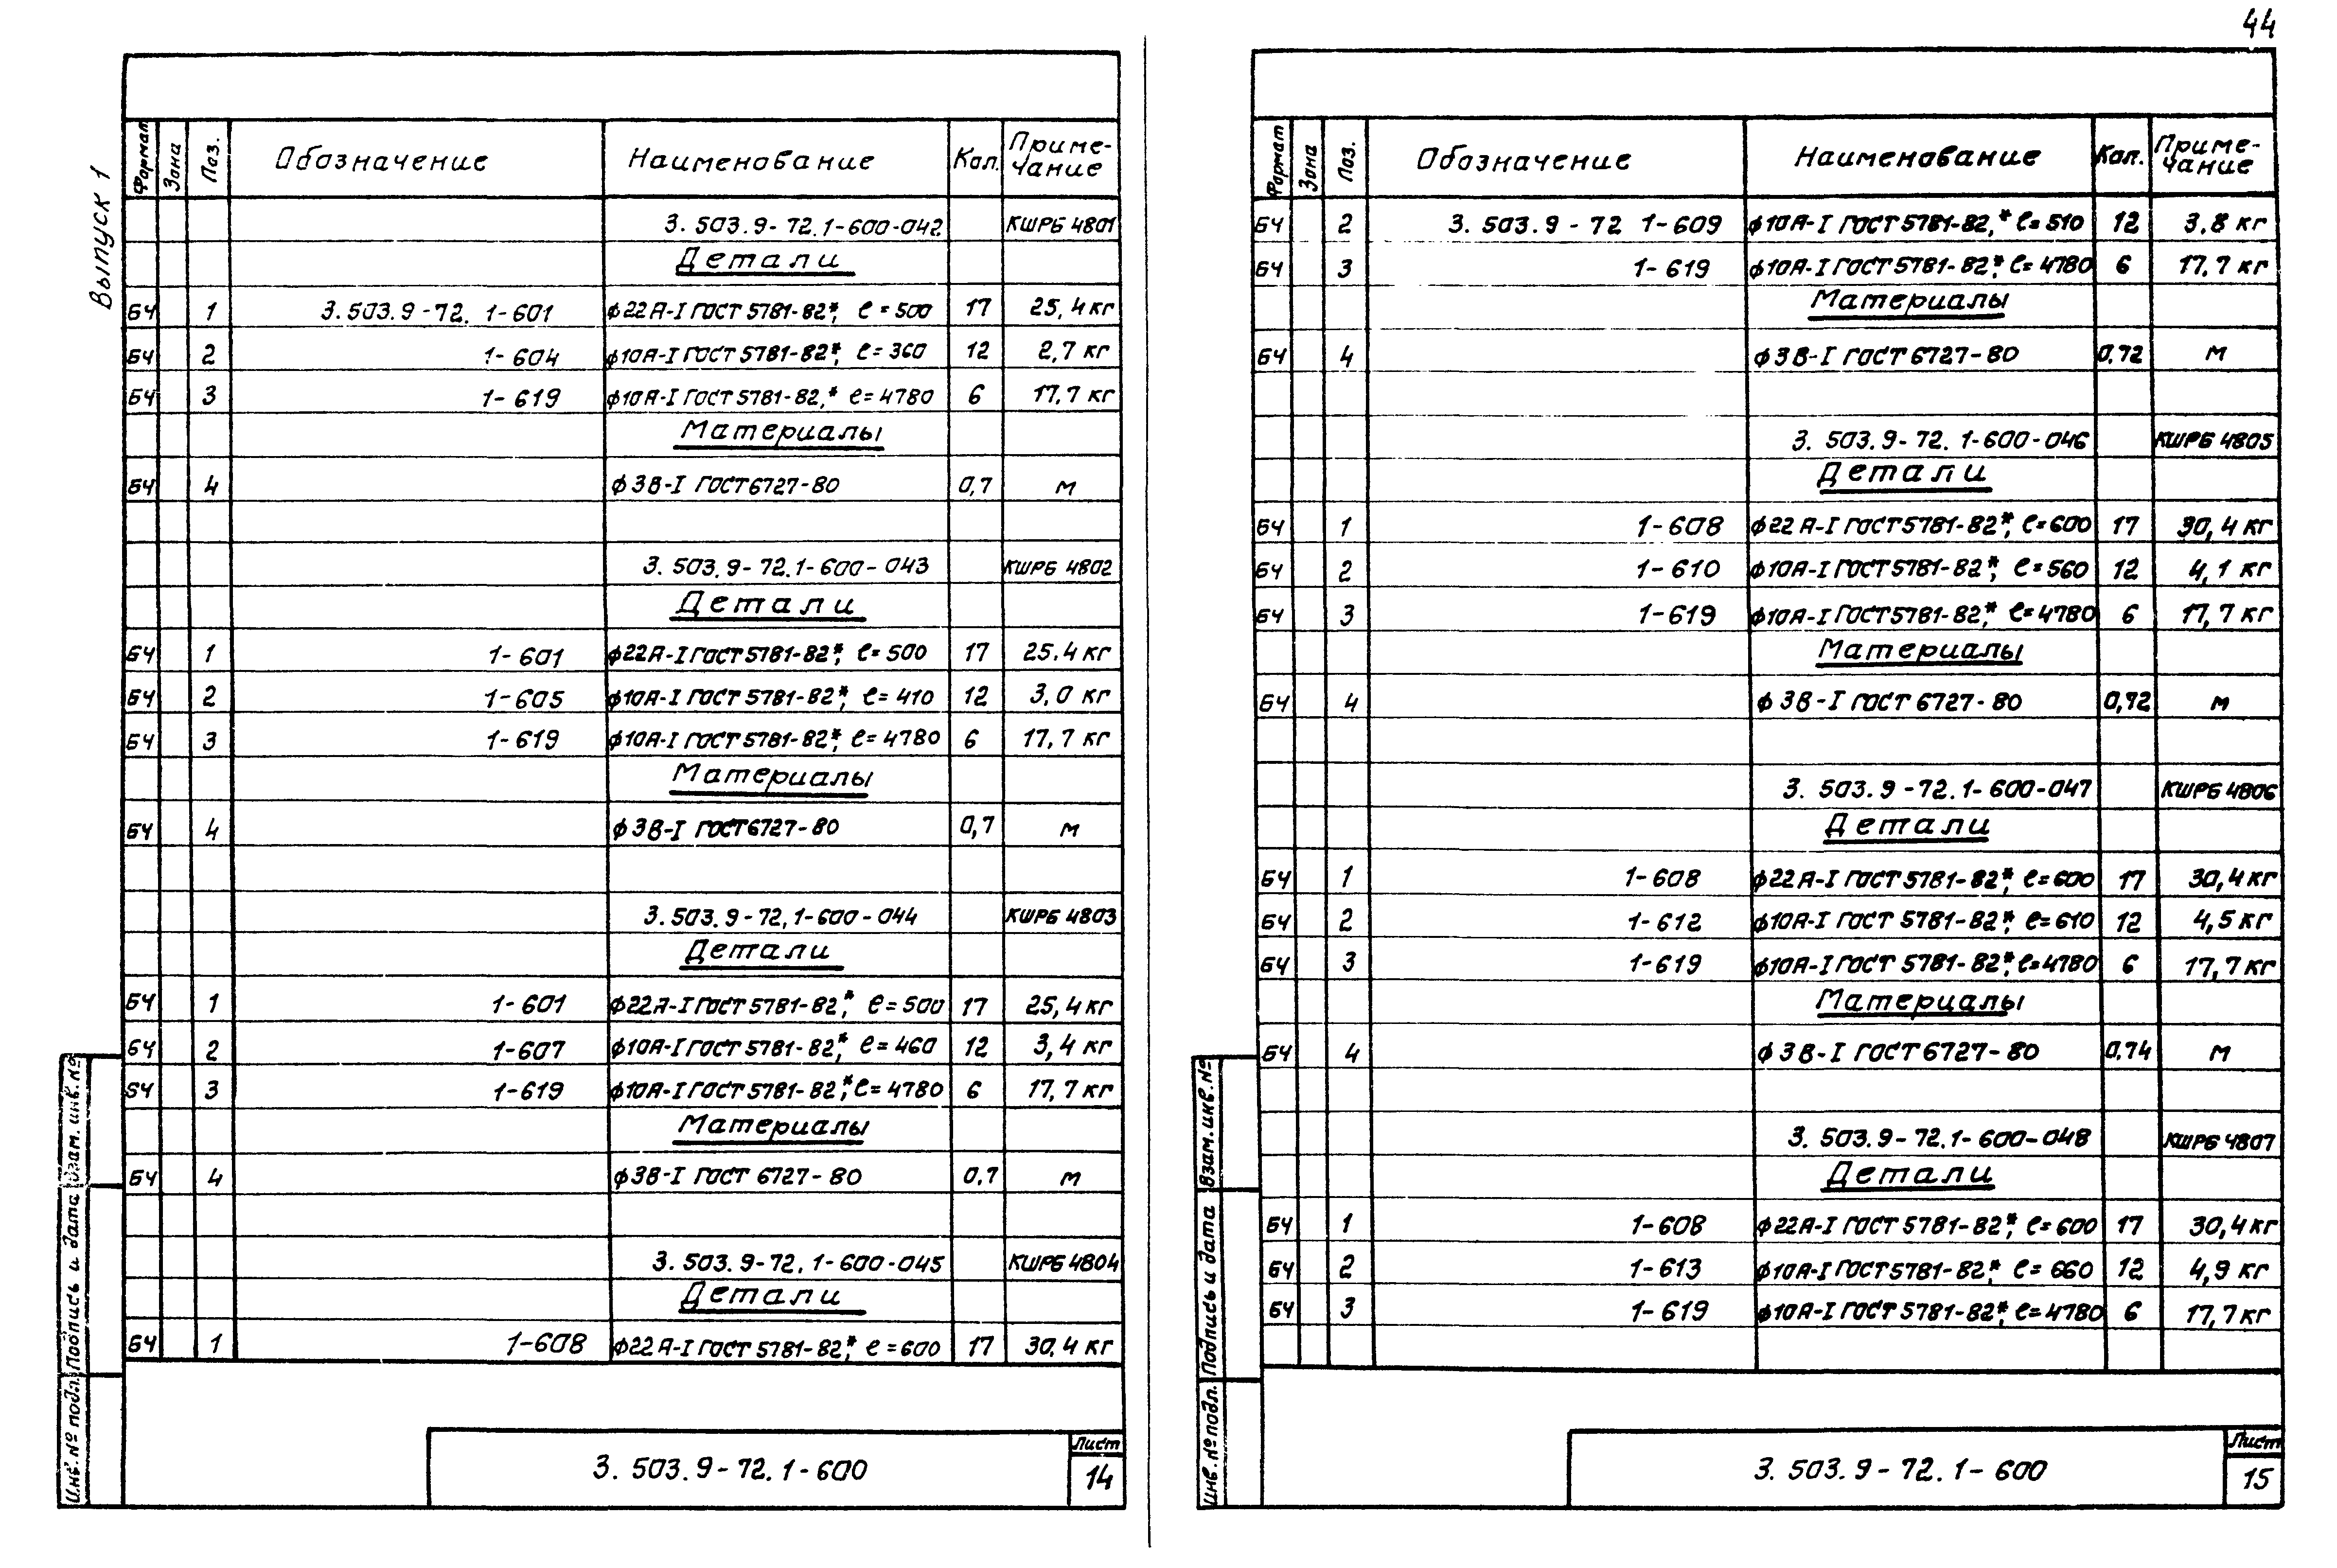 44
Выпуск 1
Формат Зона Поз. Обозначение Наименование Кол. Приме-
чание
3.503.9-72.1-600-042 КШРБ 4801
Детали
БЧ 1 3.503.9-72. 1-601 ф22А-I ГОСТ 5781-82*, ℓ=500 17 25,4 кг
БЧ 2 1-604 ф10А-I ГОСТ 5781-82*, ℓ=360 12 2,7 кг
БЧ 3 1-619 ф10А-I ГОСТ 5781-82,* ℓ=4780 6 17,7 кг
Материалы
БЧ 4 ф3В-I ГОСТ 6727-80 0,7 м
3.503.9-72.1-600-043 КШРБ 4802
Детали
БЧ 1 1-601 ф22А-I ГОСТ 5781-82*, ℓ=500 17 25.4 кг
БЧ 2 1-605 ф10А-I ГОСТ 5781-82*, ℓ=410 12 3,0 кг
БЧ 3 1-619 ф10А-I ГОСТ 5781-82*, ℓ=4780 6 17,7 кг
Материалы
БЧ 4 ф3В-I ГОСТ 6727-80 0,7 м
3.503.9-72.1-600-044 КШРБ 4803
Детали
БЧ 1 1-601 ф22А-I ГОСТ 5781-82,* ℓ=500 17 25,4 кг
БЧ 2 1-607 ф10А-I ГОСТ 5781-82,* ℓ=460 12 3,4 кг
БЧ 3 1-619 ф10А-I ГОСТ 5781-82,* ℓ=4780 6 17,7 кг
Материалы
БЧ 4 ф3В-I ГОСТ 6727-80 0,7 м
3.503.9-72.1-600-045 КШРБ 4804
Детали
БЧ 1 1-608 ф22А-I ГОСТ 5781-82,* ℓ=600 17 30,4 кг
Инв. № подл. Подпись и дата Взам. инв. №
3.503.9-72.1-600
Лист
14
Формат Зона Поз. Обозначение Наименование Кол. Приме-
чание
БЧ 2 3.503.9-72 1-609 ф10А-I ГОСТ 5781-82,* ℓ=510 12 3,8 кг
БЧ 3 1-619 ф10А-I ГОСТ 5781-82*, ℓ=4780 6 17,7 кг
Материалы
БЧ 4 ф3В-I ГОСТ 6727-80 0,72 м
3.503.9-72.1-600-046 КШРБ 4805
Детали
БЧ 1 1-608 ф22А-I ГОСТ 5781-82*, ℓ=600 17 30,4 кг
БЧ 2 1-610 ф10А-I ГОСТ 5781-82*, ℓ=560 12 4,1 кг
БЧ 3 1-619 ф10А-I ГОСТ 5781-82,* ℓ=4780 6 17,7 кг
Материалы
БЧ 4 ф3В-I ГОСТ 6727-80 0,72 м
3.503.9-72.1-600-047 КШРБ 4806
Детали
БЧ 1 1-608 ф22А-I ГОСТ 5781-82*, ℓ=600 17 30,4 кг
БЧ 2 1-612 ф10А-I ГОСТ 5781-82*, ℓ=610 12 4,5 кг
БЧ 3 1-619 ф10А-I ГОСТ 5781-82*, ℓ=4780 6 17,7 кг
Материалы
БЧ 4 ф3В-I ГОСТ 6727-80 0,74 м
3.503.9-72.1-600-048 КШРБ 4807
Детали
БЧ 1 1-608 ф22А-I ГОСТ 5781-82*, ℓ=600 17 30,4 кг
БЧ 2 1-613 ф10А-I ГОСТ 5781-82,* ℓ=660 12 4,9 кг
БЧ 3 1-619 ф10А-I ГОСТ 5781-82*, ℓ=4780 6 17,7 кг
Инв. № подл. Подпись и дата Взам. инв. №
3.503.9-72.1-600
Лист
15